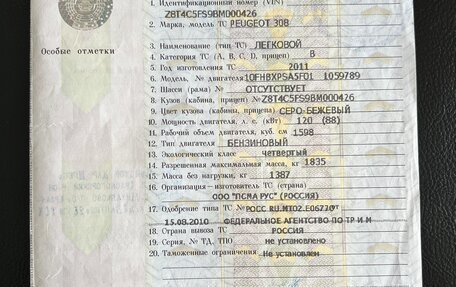 1. Идентификационный номер (VIN)
Z8T4C5FS9BM000426
2. Марка, модель ТС PEUGEOT 308
Особые отметки
3. Наименование (тип ТС) ЛЕГКОВОЙ
4. Категория ТС (А, В, С, D, прицеп) B
5. Год изготовления ТС 2011
6. Модель, № двигателя 10FHBXPSA5F01 1059789
7. Шасси (рама) № ОТСУТСТВУЕТ
8. Кузов (кабина, прицеп) № Z8T4C5FS9BM000426
9. Цвет кузова (кабины, прицепа) СЕРО-БЕЖЕВЫЙ
10. Мощность двигателя, л. с. (кВт) 120 (88)
11. Рабочий объем двигателя, куб. см 1598
12. Тип двигателя БЕНЗИНОВЫЙ
13. Экологический класс четвертый
14. Разрешенная максимальная масса, кг 1835
15. Масса без нагрузки, кг 1387
16. Организация—изготовитель ТС (страна)
ООО "ПСМА РУС" (РОССИЯ)
17. Одобрение типа ТС № РОСС RU.MT02.E06770 от
15.08.2010 ФЕДЕРАЛЬНОЕ АГЕНТСТВО ПО ТР И М
18. Страна вывоза ТС РОССИЯ
19. Серия, № ТД, ТПО не установлено
20. Таможенные ограничения Не установлен